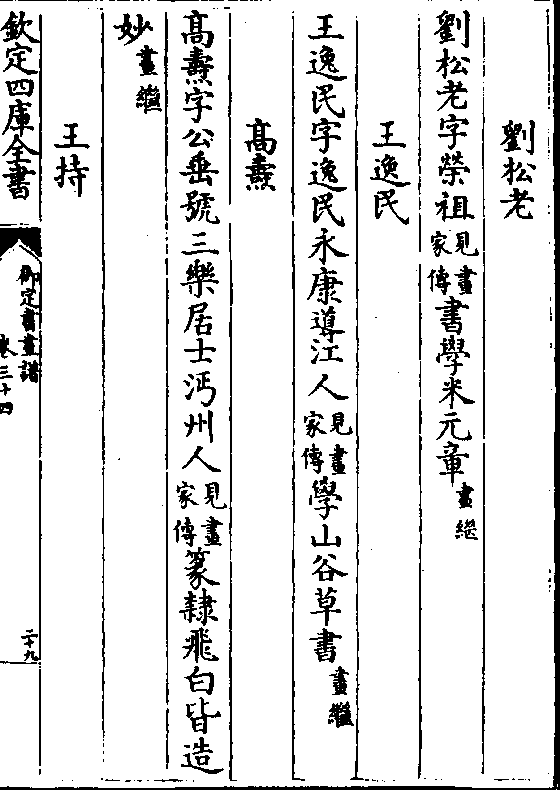 劉松老
劉松老字榮祖見畫家傳書學米元章畫繼
王逸民
王逸民字逸民永康導江人見畫家傳學山谷草書畫繼
髙燾
髙燾字公垂號三樂居士沔州人見畫家傳篆隷飛白皆造
妙畫繼
王持
欽定四庫全書
御定書畫譜
卷三十四
二十九